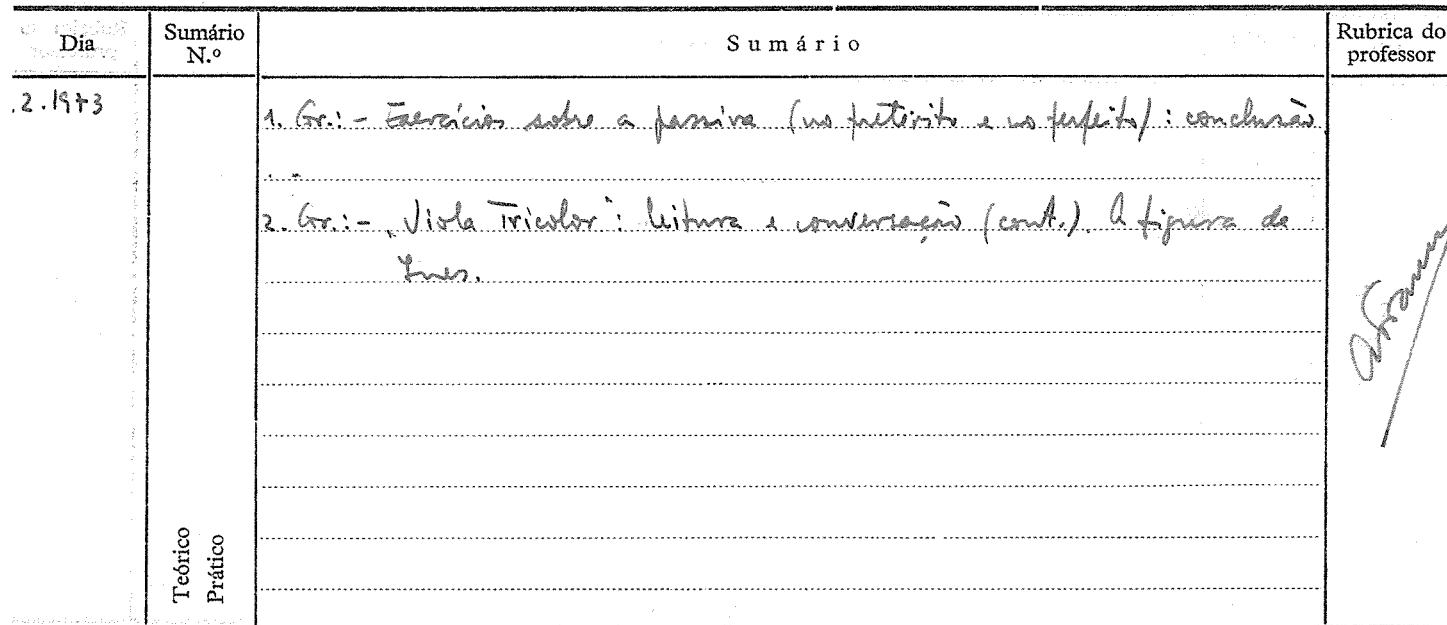 Dia
Sumário
N.º
Sumário
Rubrica do
professor
.2.1973
1. Gr.: - Exercícios sobre a passiva (no pretérito e no perfeito) : conclusão
2. Gr.: - „Viola Tricolor": leitura e conversação (cont.). A figura de
Ines.
Teórico
Prático